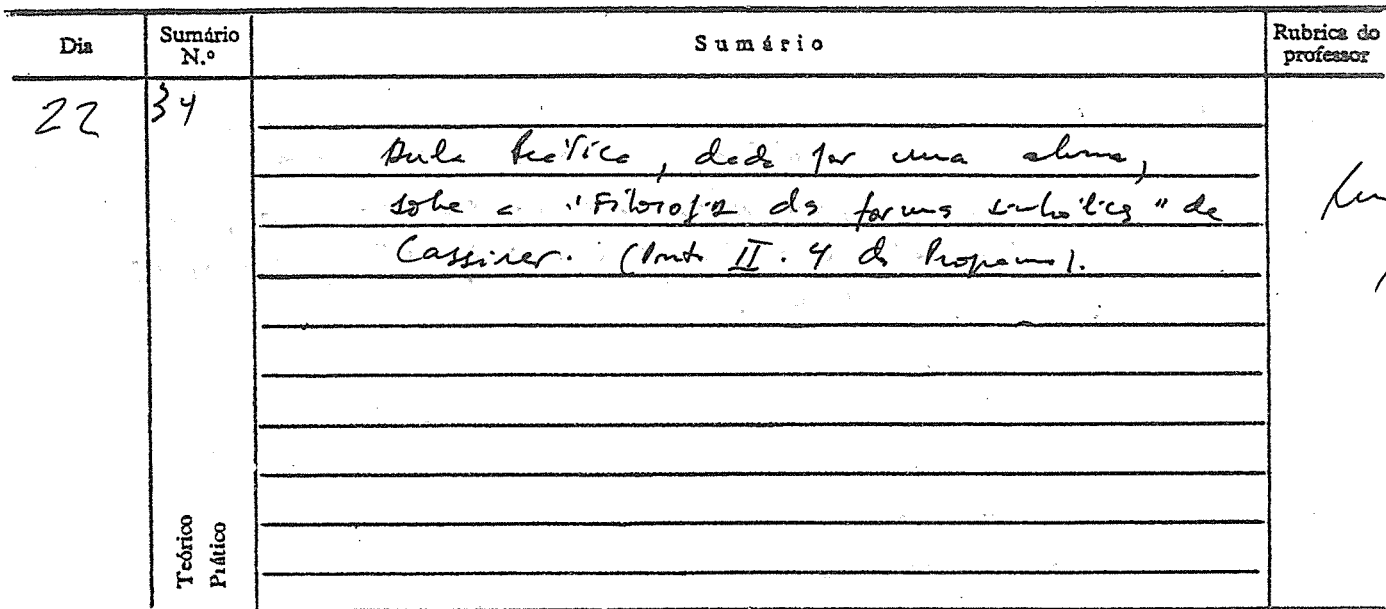 Dia Sumário N.º Sumário Rubrica do professor
22 34
Aula prática, dada por uma aluna,
sobre a "Filosofia das formas simbólicas" de
Cassirer. (Ponto II. 4 do Programa).
Teórico
Prático